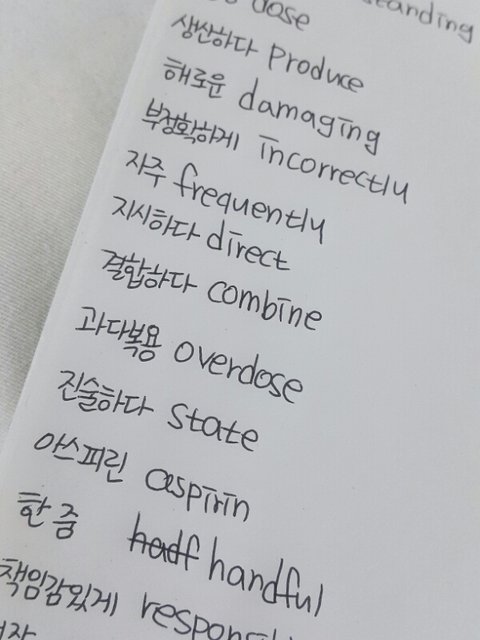 dose
생산하다 produce
해로운 damaging
부정확하게 incorrectly
자주 frequently
지시하다 direct
결합하다 combine
과다복용 overdose
진술하다 state
아스피린 aspirin
한 줌 handful
책임감있게